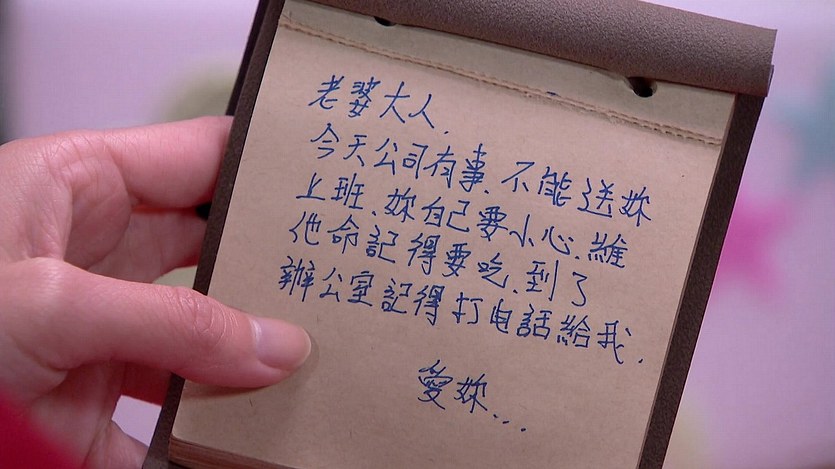 老婆大人.
今天公司有事、不能送妳
上班、妳自己要小心、維
他命記得要吃、到了
辦公室記得打电話給我.
愛妳...